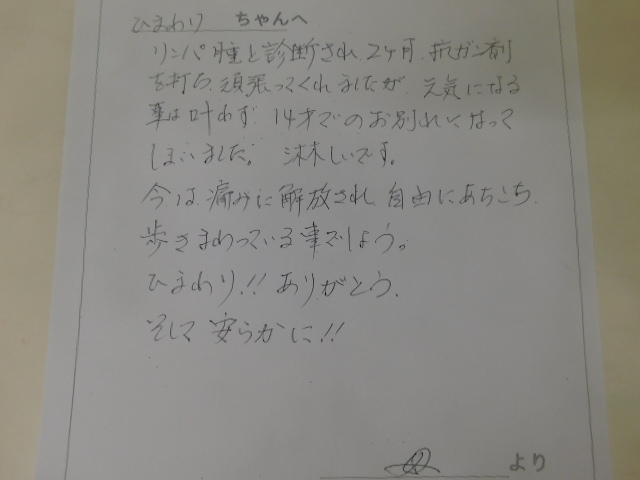 ひまわり ちゃんへ
リンパ腫と診断され、2ヶ月、抗ガン剤
を打ち、頑張ってくれましたが、元気になる
事は叶わず 14才でのお別れになって
しまいました。 淋しいです。
今は、痛みに解放され、自由にあちこち、
歩きまわっている事でしょう。
ひまわり!! ありがとう、
そして 安らかに!!
より